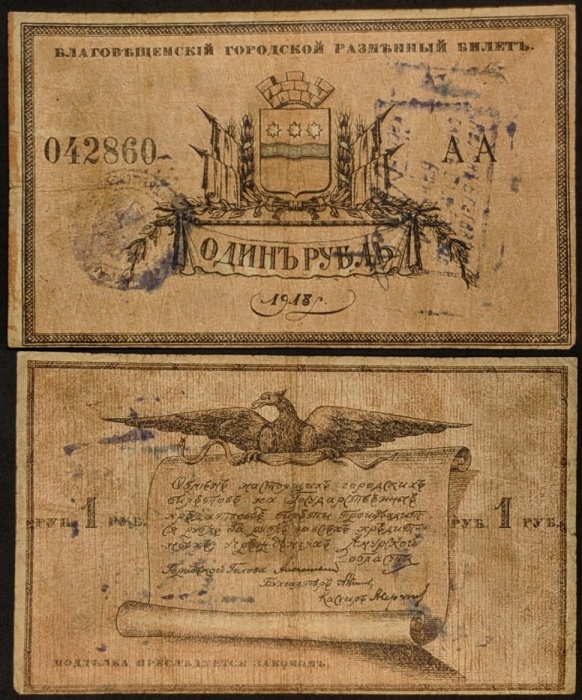 БЛАГОВѢЩЕНСКІЙ ГОРОДСКОЙ РАЗМѢННЫЙ БИЛЕТЪ.
042860
АА
ОДИНЪ РУБЛЬ
1918 г.
Обмѣнъ настоящихъ городскихъ
билетовъ на Государственные
кредитные билеты производит-
ся рубль за рубль во всѣхъ кредит-
ныхъ учрежденіяхъ Амурской
области
Городской Голова
Бухгалтеръ
Кассиръ
РУБ. 1 РУБ.
РУБ. 1 РУБ.
ПОДДѢЛКА ПРЕСЛѢДУЕТСЯ ЗАКОНОМЪ.